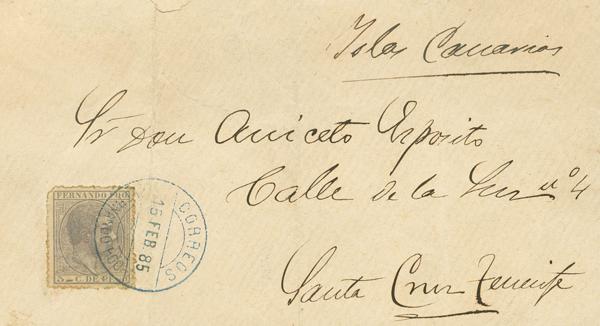 Islas Canarias
Sr Don Aniceto Esposito
Calle de la Luz nº 4
Santa Cruz Tenerife
FERNANDO POO
CORREOS
15 FEB. 85
FERNANDO POO
5 C. DE